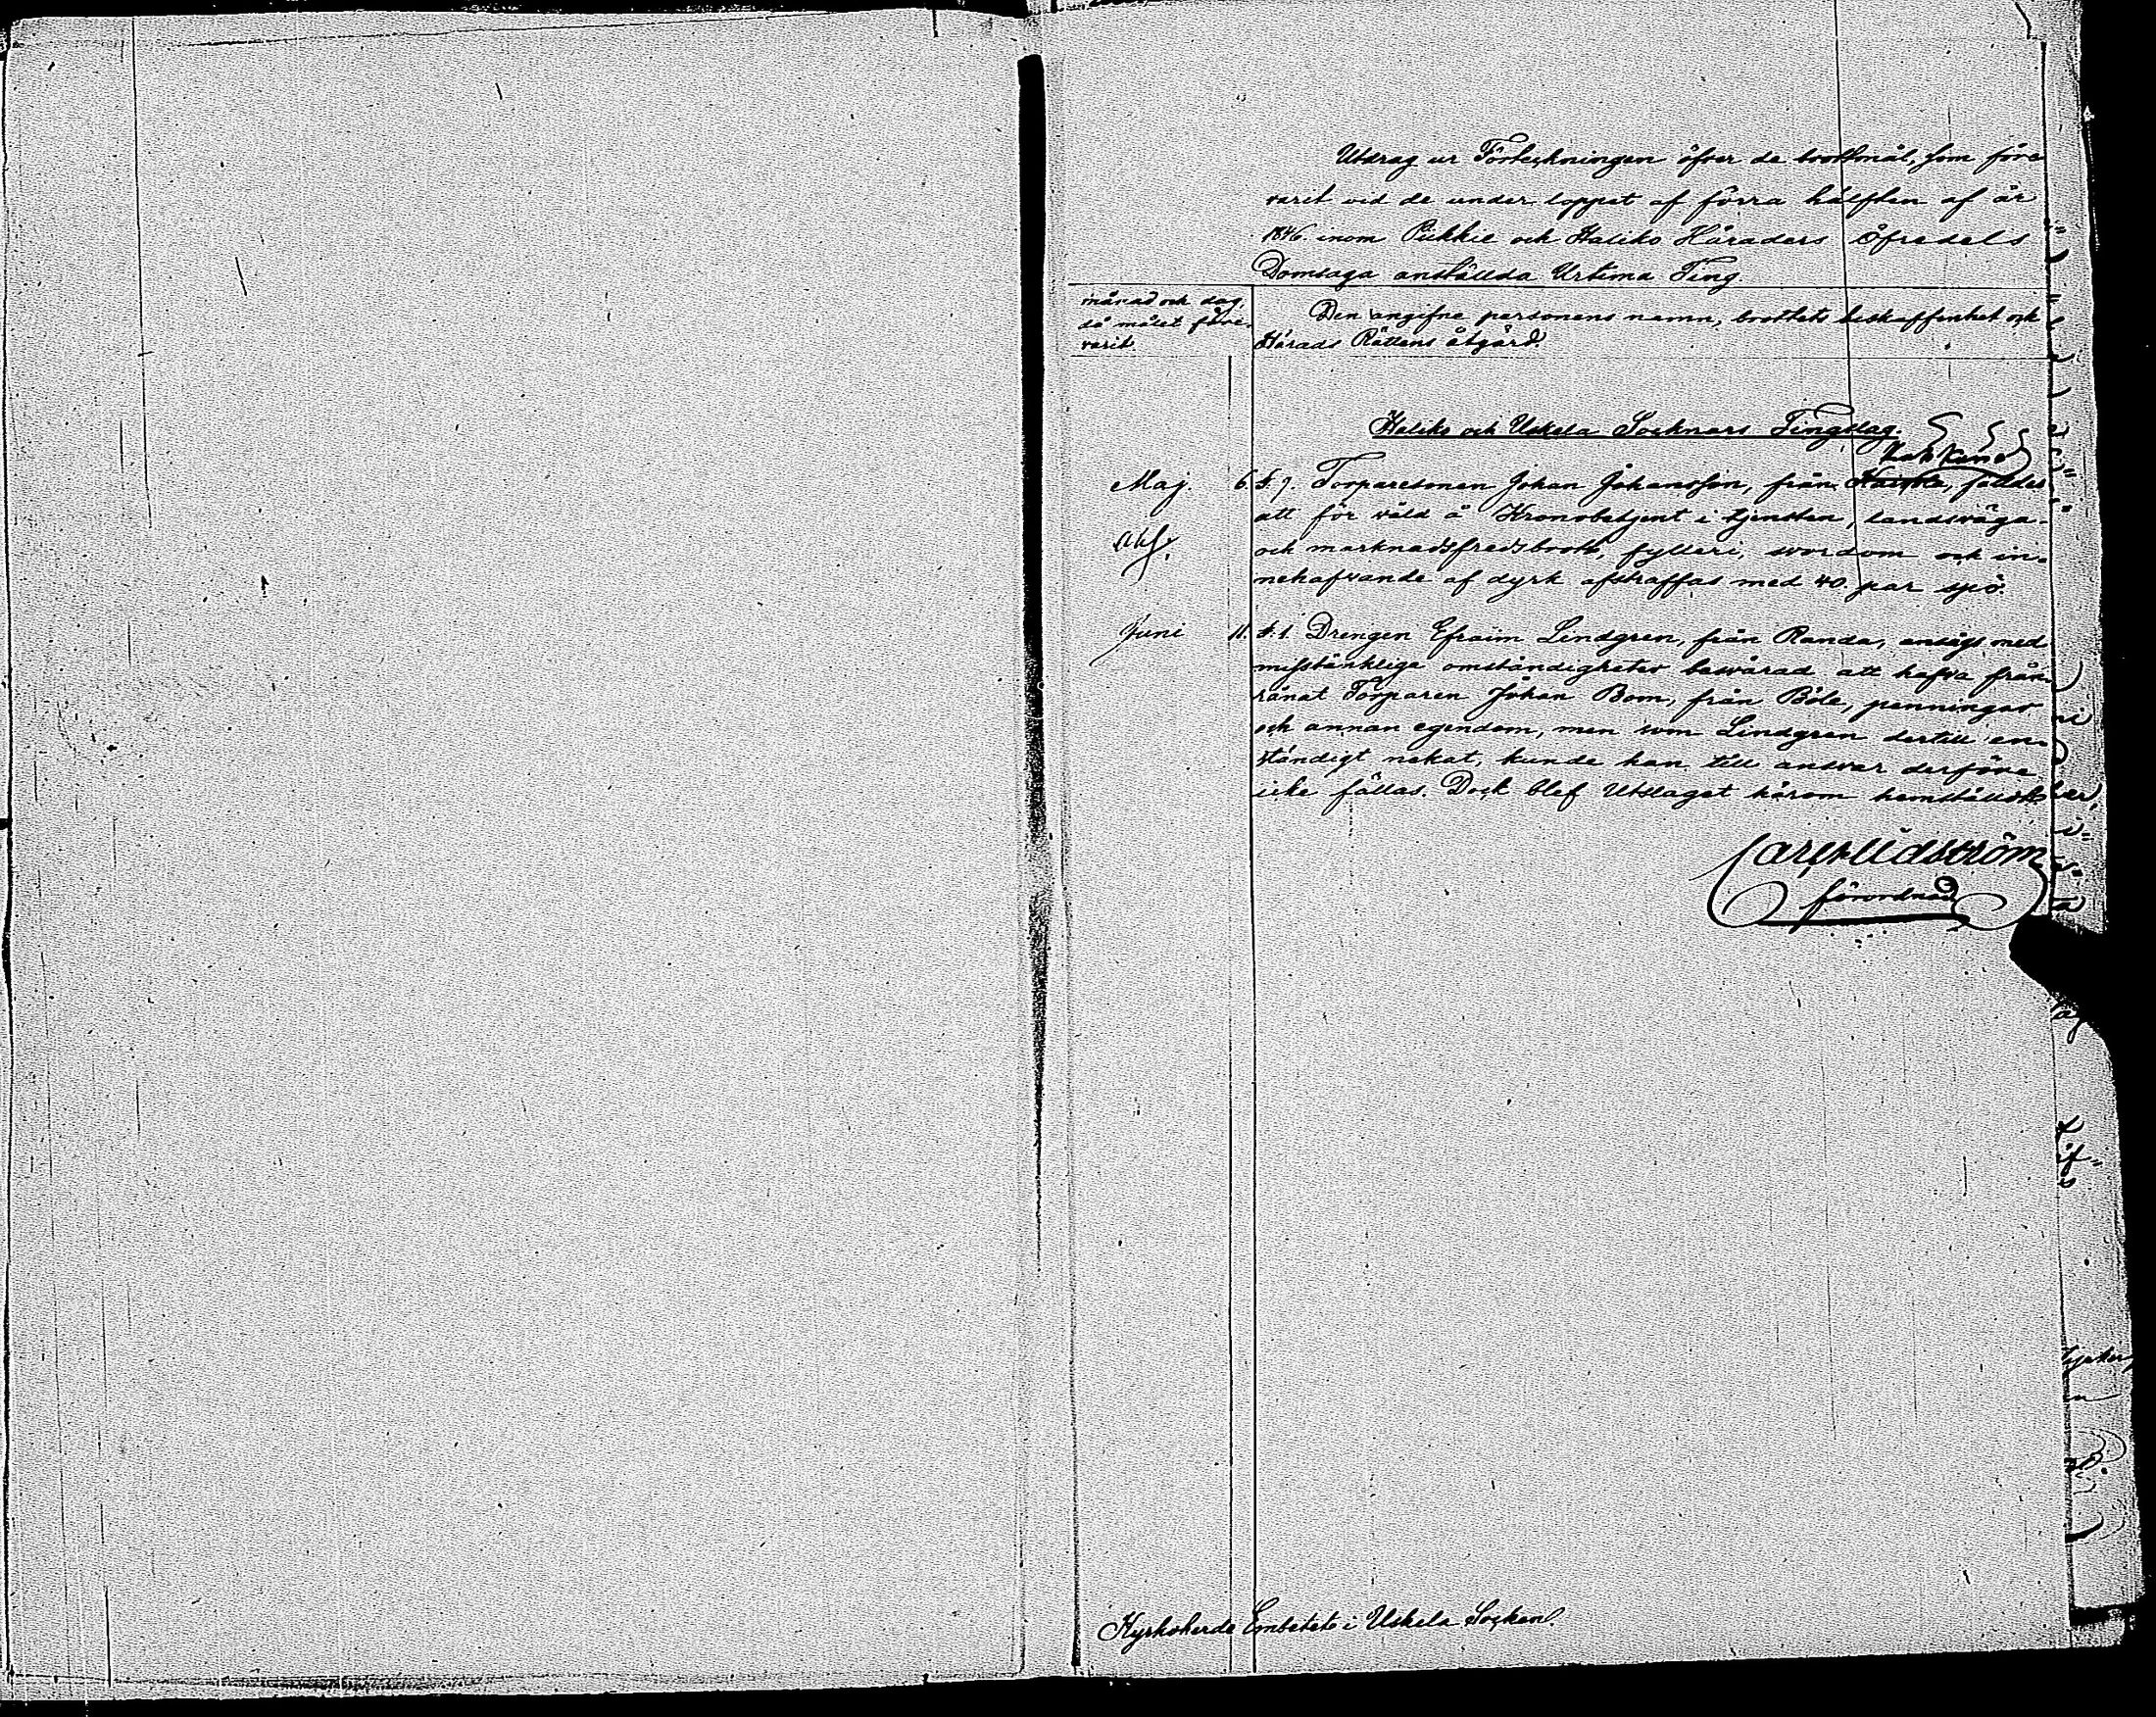 Utdrag ur Förteckningen öfver de brottmål, som före
varit vid de under loppet af förra hälften af år
1846. inom Pikkie och Haliko Härader Öfredels
Domsaga anställda Urtima Ting.
månad och dag,
då målet före-
varit.
Den angifne personens namn, brottets beskaffenhet och
Härads Rättens åtgärd.
Haliko och Uskela Socknars Tingslag.
Maj. 6. §. 7. Torparesonen Johan Johansson, från fälldes
att för våld å Kronobetjent i tjensten, landsväga-
och marknadsfredsbrott, fylleri, svordom och in-
nehafvande af dyrk afstraffas med 40 par spö.
Juni 11. §. 1. Drengen Efraim Lindgren, från Randa, ansågs med
misstänkliga omständigheter besvärad att hafva från-
rånat Torparen Johan Bom, från Böle, penningar
och annan egendom, men som Lindgren dertill en-
ständigt nekat, kunde han till ansvar derföre
icke fällas. Dock blef Utslaget härom hemställdt
förordnad
Kyrkoherde Embetet i Uskela Socken.